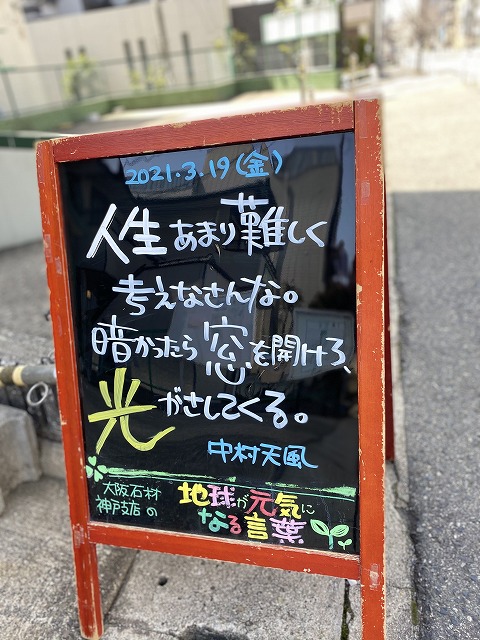 2021.3.19(金)
人生あまり難しく
考えなさんな。
暗かったら窓を開けろ、
光がさしてくる。
中村天風
大阪石材
神戸支店の
地球が元気に
なる言葉